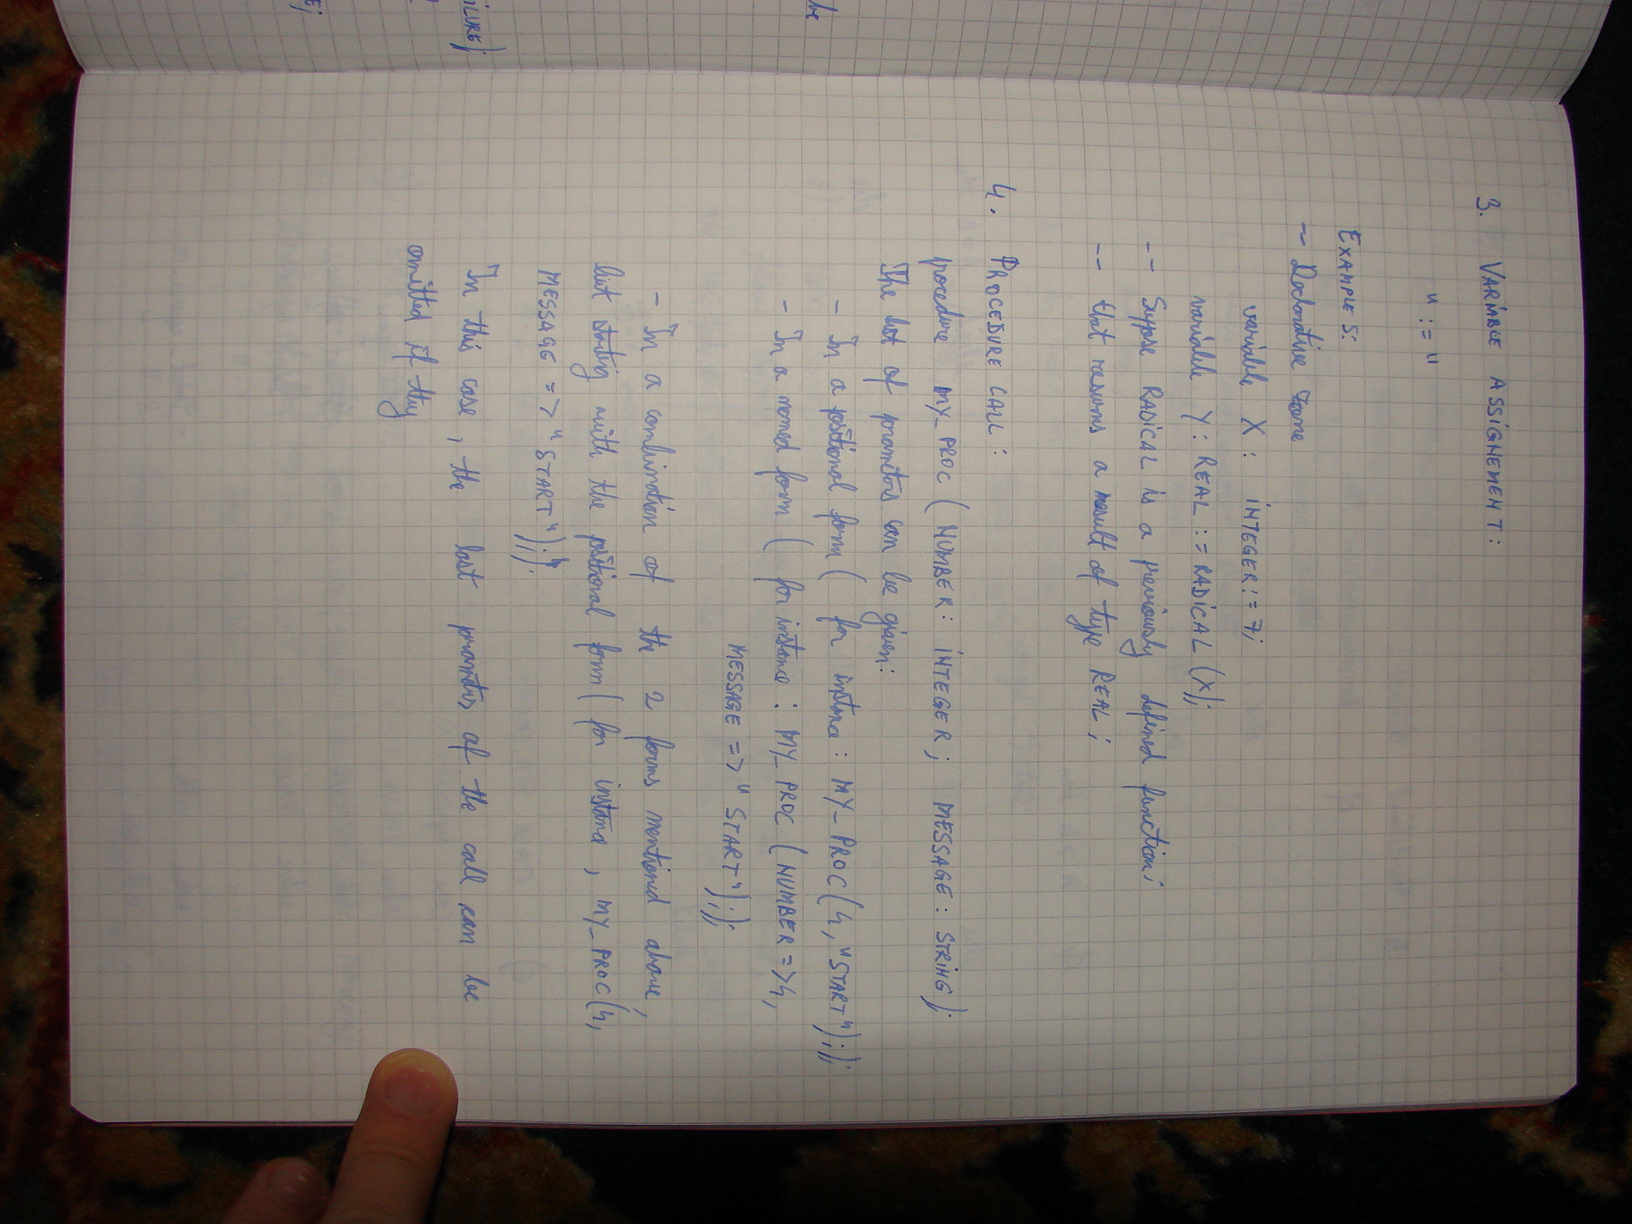 be
ILURE);
E;
3. VARIABLE ASSIGNEMENT:
" := "
EXAMPLES:
-- Declarative zone
variable X: INTEGER:= 7;
variable Y: REAL := RADICAL (X);
-- Suppose RADICAL is a previously defined function;
-- that returns a result of type REAL;
4. PROCEDURE CALL:
procedure MY_PROC (NUMBER: INTEGER; MESSAGE: STRING);
The list of parameters can be given:
- In a positional form ( for instance: MY_PROC(4, "START"););
- In a named form ( for instance: MY_PROC (NUMBER => 4,
MESSAGE => "START"););
- In a combination of the 2 forms mentioned above,
but starting with the positional form ( for instance, MY_PROC(4,
MESSAGE => "START"););
In this case, the last parameters of the call can be
omitted if they